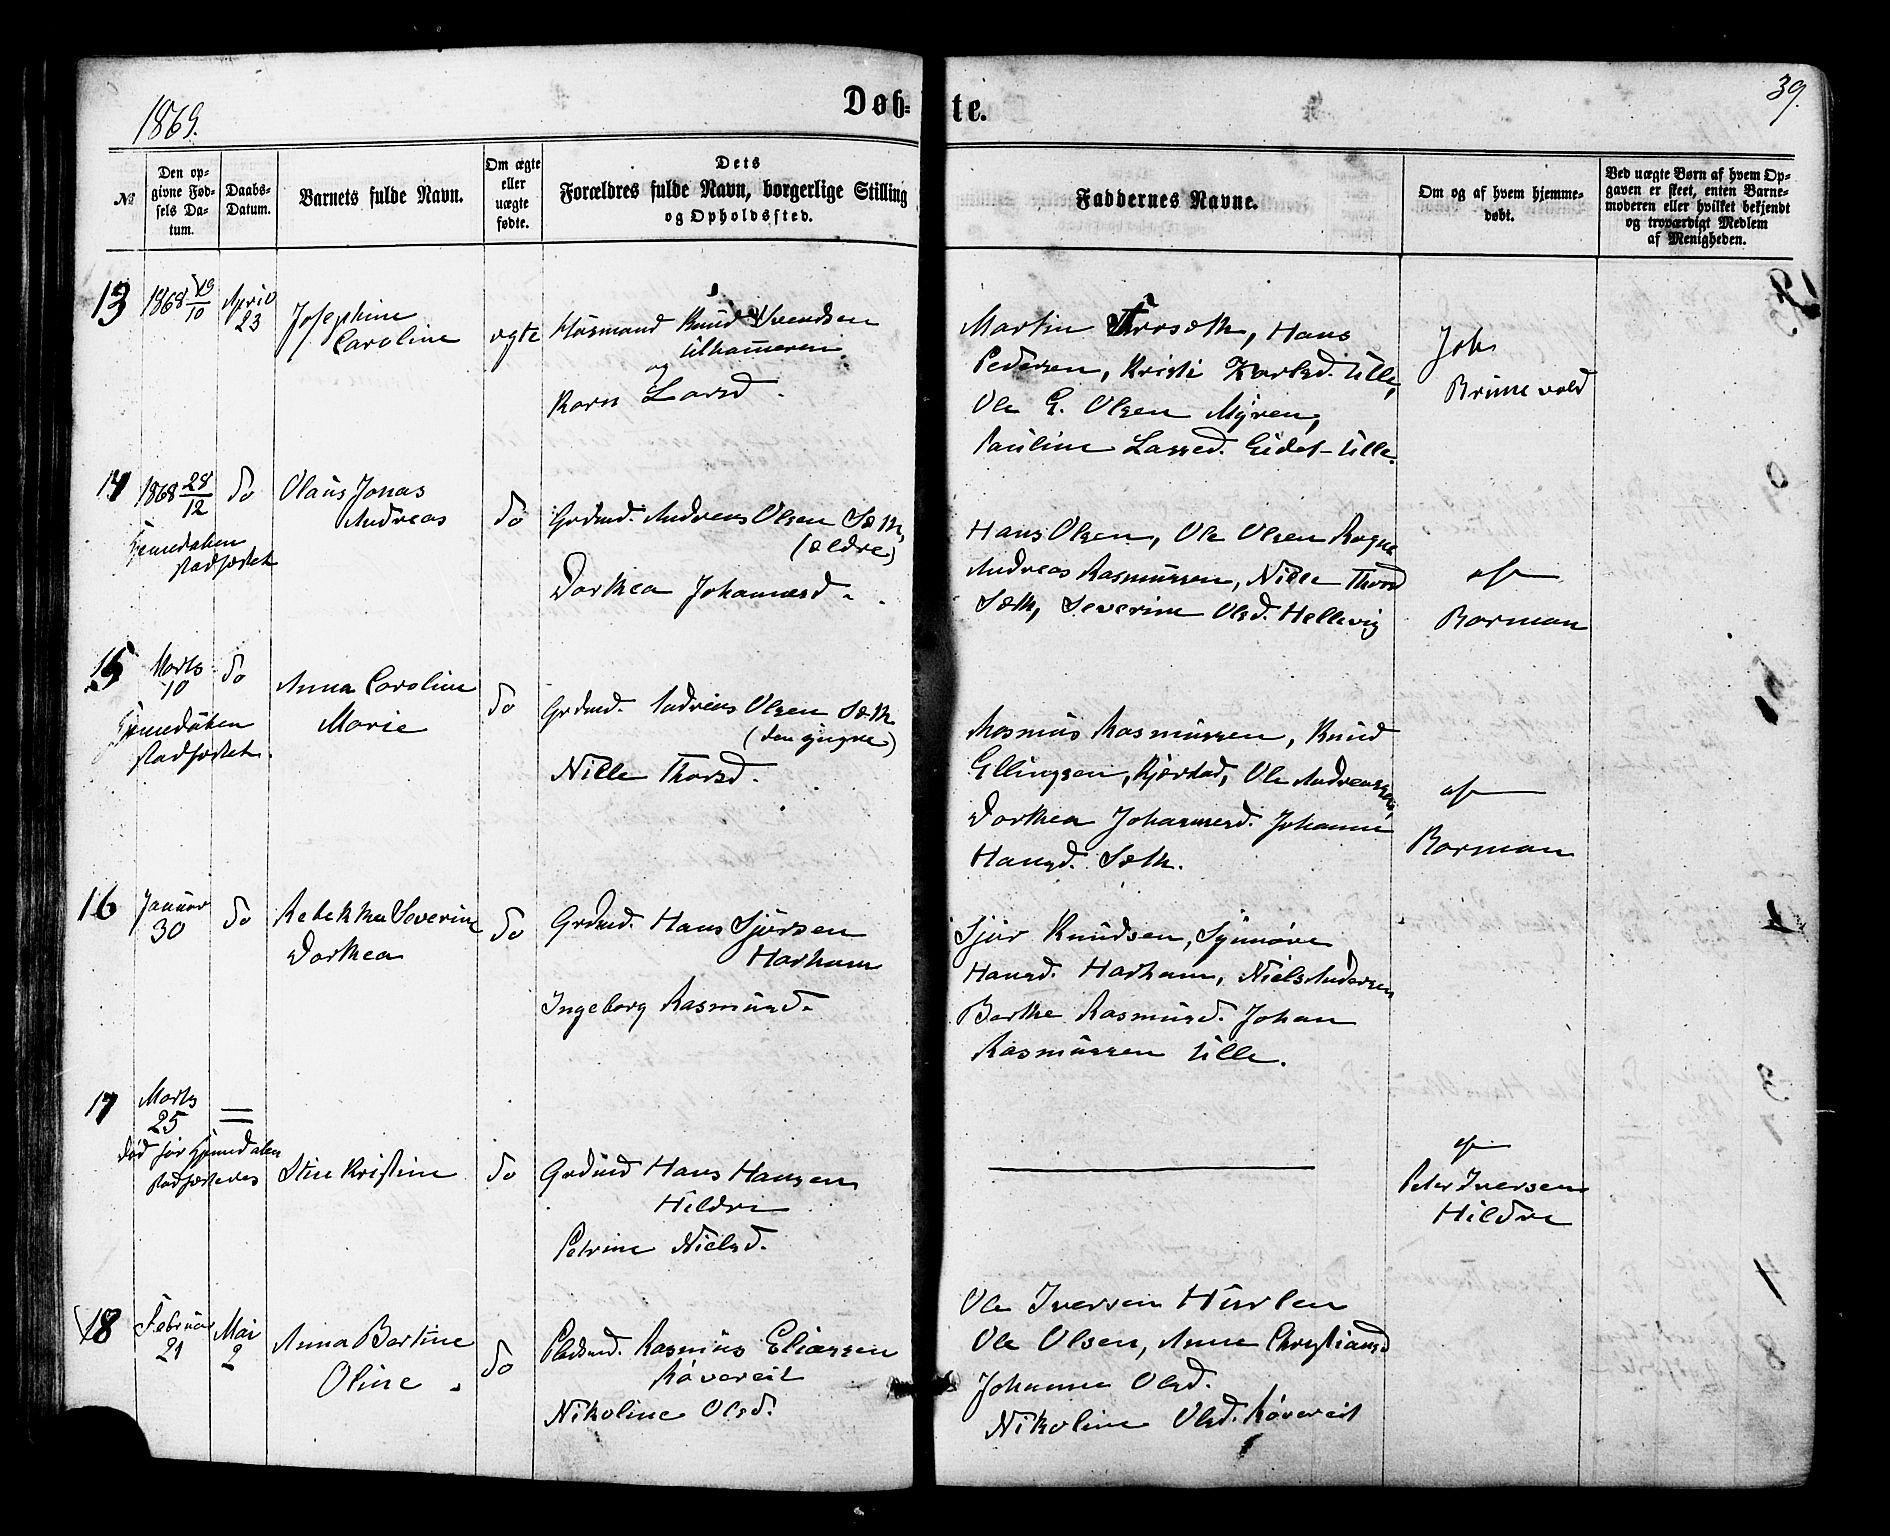 1869.
Døb-
te.
39.
№
Den op-
givne Fød-
sels Da-
tum.
Daabs-
Datum.
Barnets fulde Navn.
Om ægte
eller
uægte
fødte.
Dets
Forældres fulde Navn, borgerlige Stilling
og Opholdssted.
Faddernes Navne.
Om og af hvem hjemme-
døbt.
Ved uægte Børn af hvem Op-
gaven er skeet, enten Barne-
moderen eller hvilket bekjendt
og troværdigt Medlem
af Menigheden.
13
1868 19/10
April
23
Josephine
Caroline
ægte
Husmand Knud Svendsen
Ulhammeren
og
Karn Larsd.
Martin Aarsæth, Hans
Pedersen, Kristi Karlsd. Ulle,
Ole E. Olsen Myren,
Pauline Lassed. Eidet-Ulle.
Joh
Brunevold
14
1868 28/12
do
Hjemmedaaben
stadfæstet
Olaus Jonas
Andreas
do
Grdmd. Andreas Olsen Sæth
(ældre)
Dorthea Johannesd.
Hans Olsen, Ole Olsen Rogne
Andreas Rasmussen, Nille Thorsd
Sæth, Severine Olsd. Hellevig
af
Barman
15
Marts
10
do
Hjemmedaaben
stadfæstet.
Anna Caroline
Marie
do
Grdmd. Andreas Olsen Sæth
(den yngre)
Nille Thorsd.
Rasmus Rasmussen, Knud
Ellingsen, Kjerstad, Ole Andreassen,
Dorthea Johannesd. Johanne
Hansd. Sæth.
af
Barman
16
Januar
30
do
Rebekka Severine
Dorthea
do
Grdmd. Hans Sjursen
Harham
Ingeborg Rasmusd.
Sjur Knudsen, Synnøve
Hansd. Harham, Niels Andersen
Berthe Rasmusd. Johan
Rasmussen Ulle.
17
Marts
25
død før Hjemmedaaben
stadfæstedes
Stine Kristine
do
Grdmd Hans Hansen
Hildre
Petrine Nielsd.
af
Peter Iversen
Hildre
18
Februar
21
Mai
2
Anna Bertine
Oline
do
Pladsmd. Rasmus Eliassen
Røvereit
Nikoline Olsd.
Ole Iversen Hurlen
Ole Olsen, Anne Christiansd
Johanne Olsd.
Nikoline Olsd. Røvereit